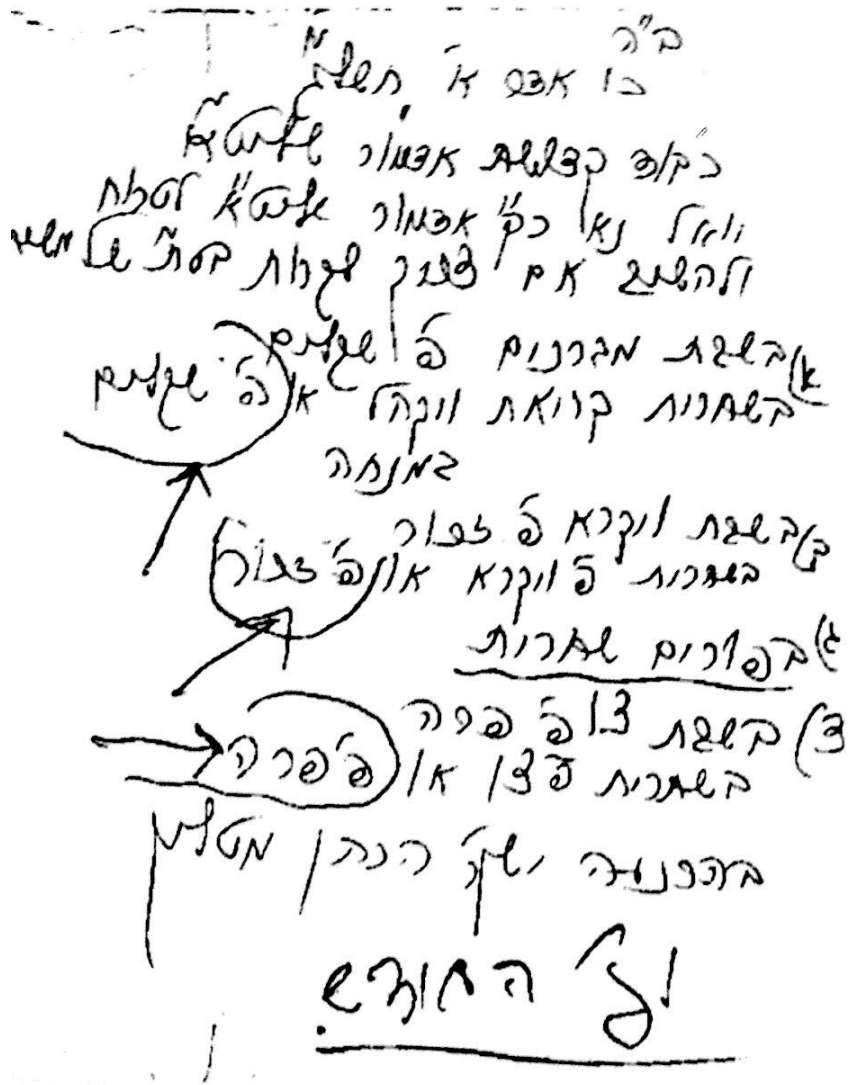 ב"ה
כו אדר א'
כבוד קדושת אדמו"ר שליט"א
יואל נא כ"ק אדמו"ר שליט"א
ולהשיב אם צריך לקרות בס"ת של משיח
א) בשבת מברכים פ' שקלים
בשחרית קריאת ויקהל או פ' שקלים
במנחה
ב) בשבת ויקרא פ' זכור
בשחרית פ' ויקרא או פ' זכור
ג) בפורים שחרית
ד) בשבת צו פ' פרה
בשחרית פ' צו או פ' פרה
בהכנעה הכהן
החודש